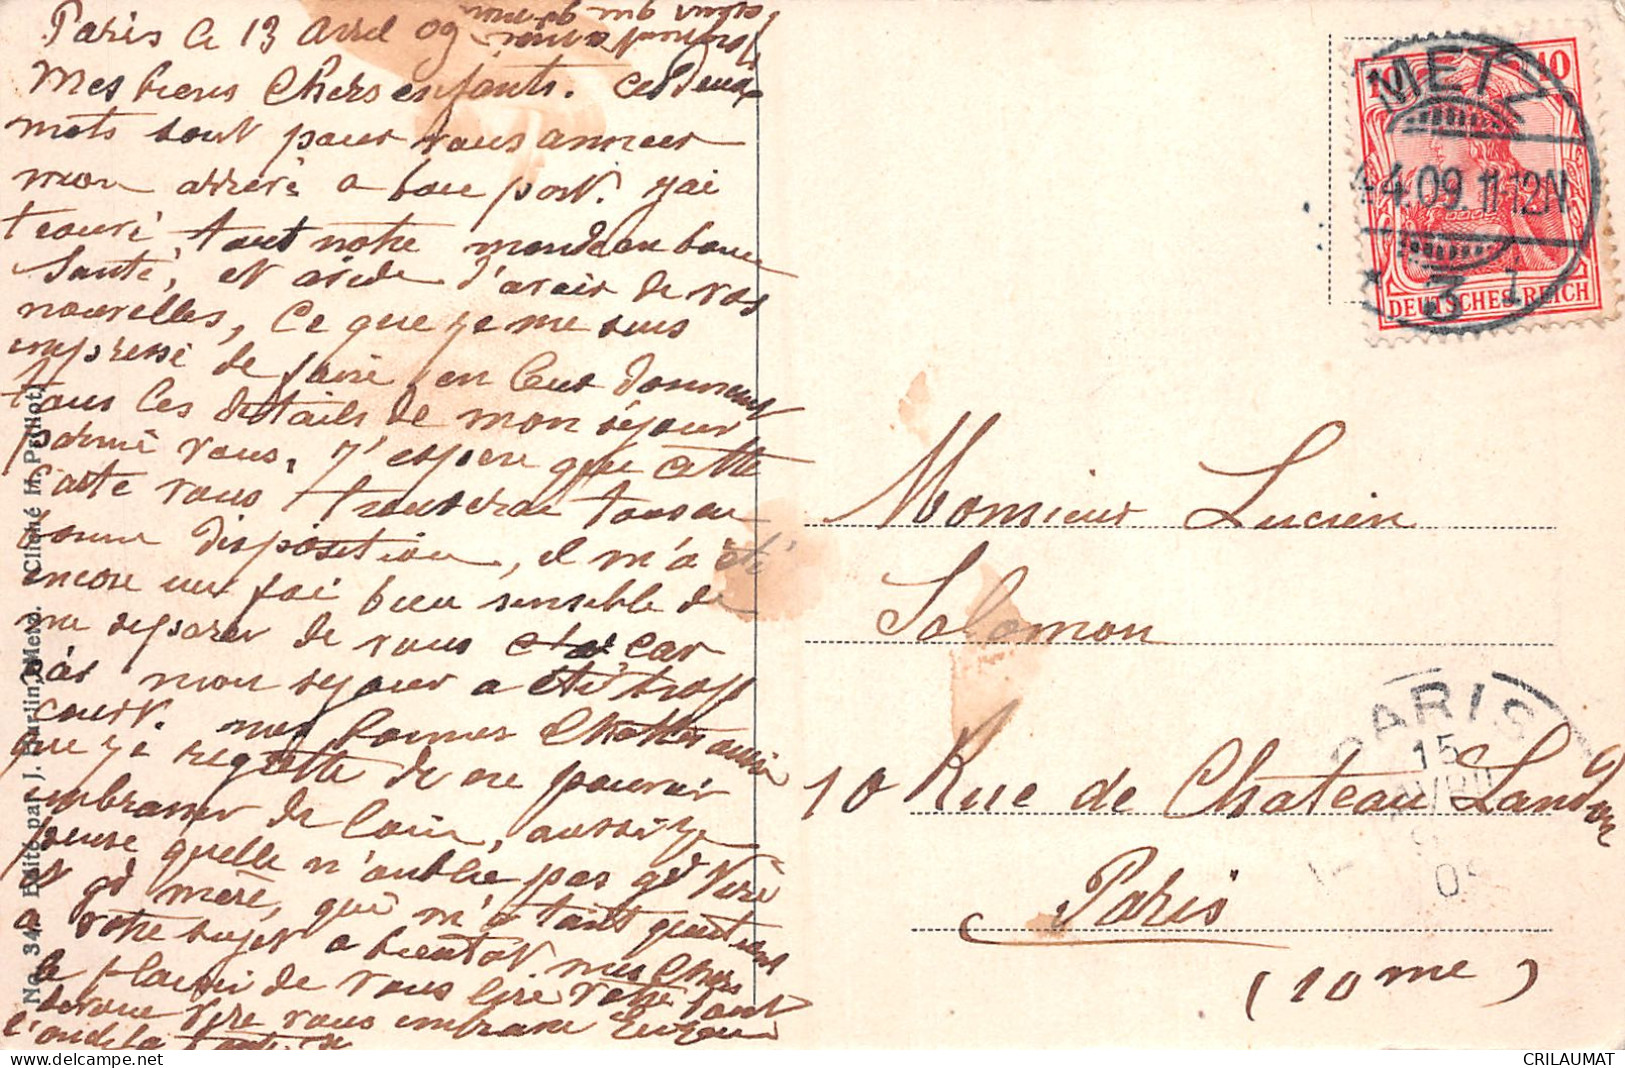 Paris le 13 Avril 09
Mes biens Chers enfants. Ces deux
mots sont pour vous annoncer
mon arrivé a bon port. j'ai
trouvé, tout notre monde en bonne
Santé, et avide d'avoir de vos
nouvelles, ce que je me suis
empressé de faire, en leur donnent
tous les détails de mon séjour
parmé vous, J'espère que cette
carte vous trouverai tous en
bonne disposition, il m'a été
encore une foi bien sensible de
me séparer de vous car
mon séjour a été trop
court. mes bonnes
que j'ai regrette de ne pouvoir
embrasser de loin, aussi je
pense quelle n'oublié pas
et gd mère, que m'a tant
a votre sujet a bientôt mes chers
le plaisir de vous lire votre tant
père vous embrasse
No. 34. Edité par J. Hurlin, Metz. (Cliché H. Peillot)
METZ
4.09.11-12N.
3
10
DEUTSCHES REICH
Monsieur Lucien
Salomon
10 Rue de Chateau Landon
Paris
(10me)
PARIS
15
AVRIL
CRILAUMAT